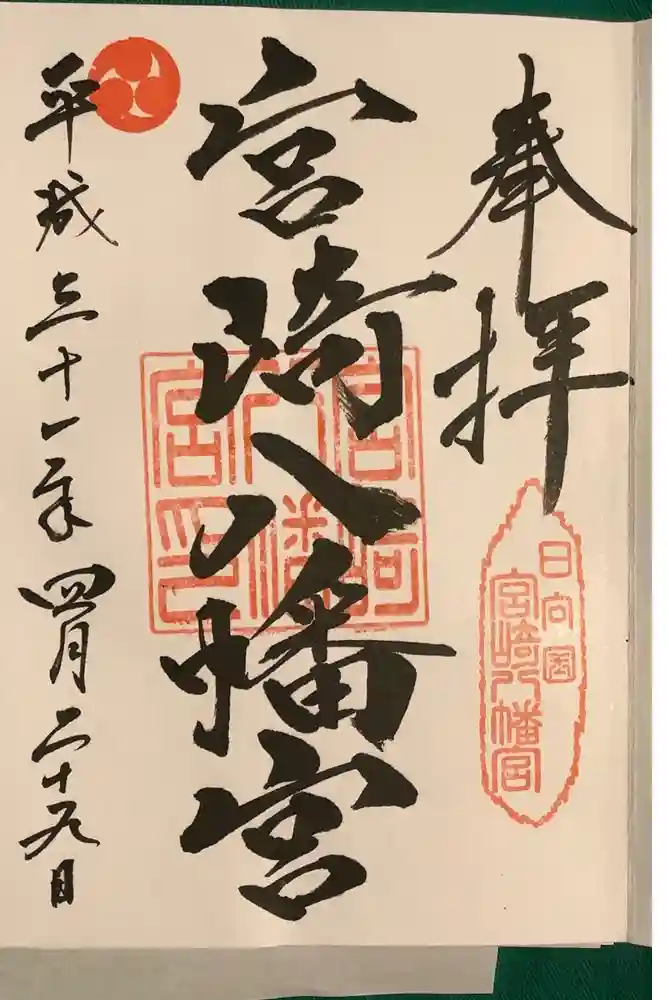 奉拝
日向国
宮崎八幡宮
宮崎八幡宮
宮崎
八幡
宮印
平成三十一年四月二十九日